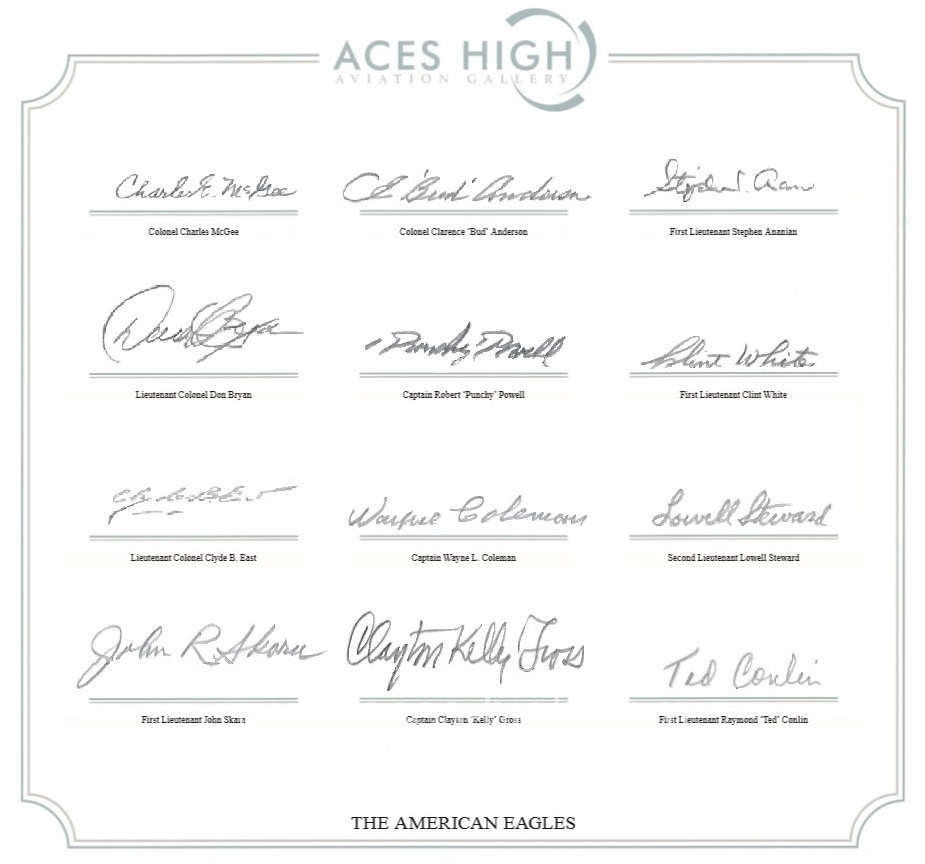 ACES HIGH
AVIATION GALLERY
Charles E. McGee
C E "Bud" Anderson
Colonel Charles McGee
Colonel Clarence "Bud" Anderson
First Lieutenant Stephen Ananian
"Punchy" Powell
Clint White
Lieutenant Colonel Don Bryan
Captain Robert "Punchy" Powell
First Lieutenant Clint White
Wayne Coleman
Lowell Steward
Lieutenant Colonel Clyde B. East
Captain Wayne L. Coleman
Second Lieutenant Lowell Steward
John R. Skara
Clayton Kelly Gross
Ted Conlin
First Lieutenant John Skara
Captain Clayton "Kelly" Gross
First Lieutenant Raymond "Ted" Conlin
THE AMERICAN EAGLES